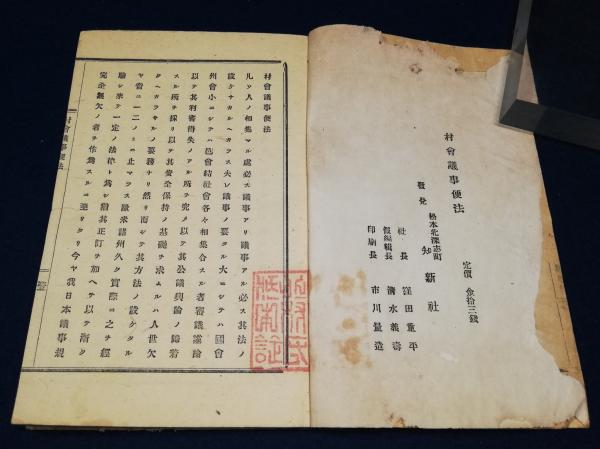 村會議事便法
定價 金拾三錢
發兌 松本北深志町 知新社
社長 窪田重平
假編輯長 淸水義壽
印刷長 市川量造
村會議事便法
凡ソ人ノ相集マル處必ス議事アリ議事アル必ス其法ノ
設ケナカルヘカラス夫レ議事ノ要タル大ニシテハ國會
州會小ニシテハ邑會結社會各々相集合スル者審議讜論
以テ其利害得失ノアル所ヲ究メ以テ其公議輿論ノ歸着
スル所ヲ採リ以テ其安全保持ノ基礎ヲ求ムルハ人世欠
クヘカラサルノ要務ナリ然リ而シテ其方法ノ設ケタル
ヤ啻ニ一二ノミニ止マラス歐米諸州久ク實際ニ之ヲ經
驗シ來テ一定ノ法律ト爲シ猶其正訂ヲ加ヘテ以テ漸ク
完全無欠ノ者ヲ作爲スルニ至リタリ今ヤ我日本議事規
村會議事便法